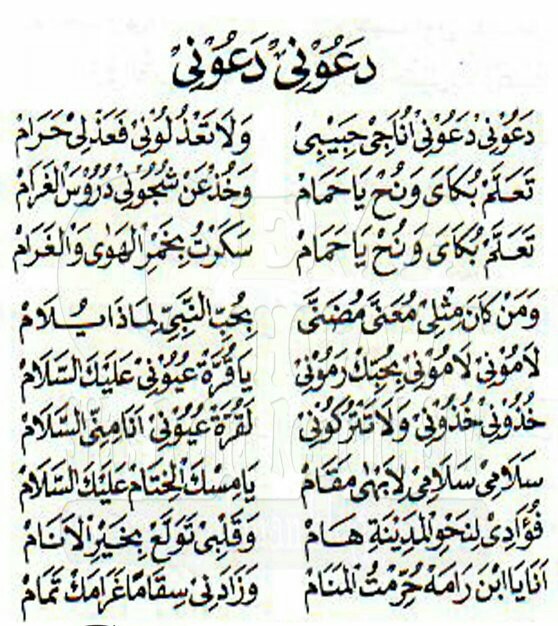 دَعُوْنِيْ دَعُوْنِيْ
دَعُوْنِيْ دَعُوْنِيْ اُنَاجِيْ حَبِيْبِيْ وَلَا تَعْذُلُوْنِيْ فَعَذْلِيْ حَرَامْ
تَعَلَّمْ بُكَاىَ وَنُحْ يَا حَمَامْ وَخُذْ عَنْ شُجُوْنِيْ دُرُوْسَ الغَرَامْ
تَعَلَّمْ بُكَاىَ وَنُحْ يَا حَمَامْ سَكَرْتُ بِخَمْرِ الْهَوٰى وَالْغَرَامْ
وَمَنْ كَانَ مِثْلِيْ مُعَنَّى مُضَنَّى بِحُبِّ النَّبِيِّ لِمَاذَا يُلَامْ
لَامُوْنِيْ لَامُوْنِيْ بِحُبِّكَ رَمُوْنِيْ يَا قُرَّةَ عُيُوْنِيْ عَلَيْكَ السَّلَامْ
خُذُوْنِيْ خُذُوْنِيْ وَلَا تَتْرُكُوْنِيْ لَقُرَّةَ عُيُوْنِيْ اَنَا مِنِّى السَّلَامْ
سَلَامِيْ سَلَامِيْ لِاَبْهٰى مَقَامْ يَا مِسْكَ الْخِتَامْ عَلَيْكَ السَّلَامْ
فُؤَادِيْ لِنَحْوِ الْمَدِيْنَةِ هَامْ وَقَلْبِيْ تَوَلَّعْ بِخَيْرِ الْاَنَامْ
اَنَا يَا ابْنَ رَامَهْ حُرِّمْتُ الْمَنَامْ وَزَادَنِيْ سِقَامًا غَرَامَكْ تَمَامْ